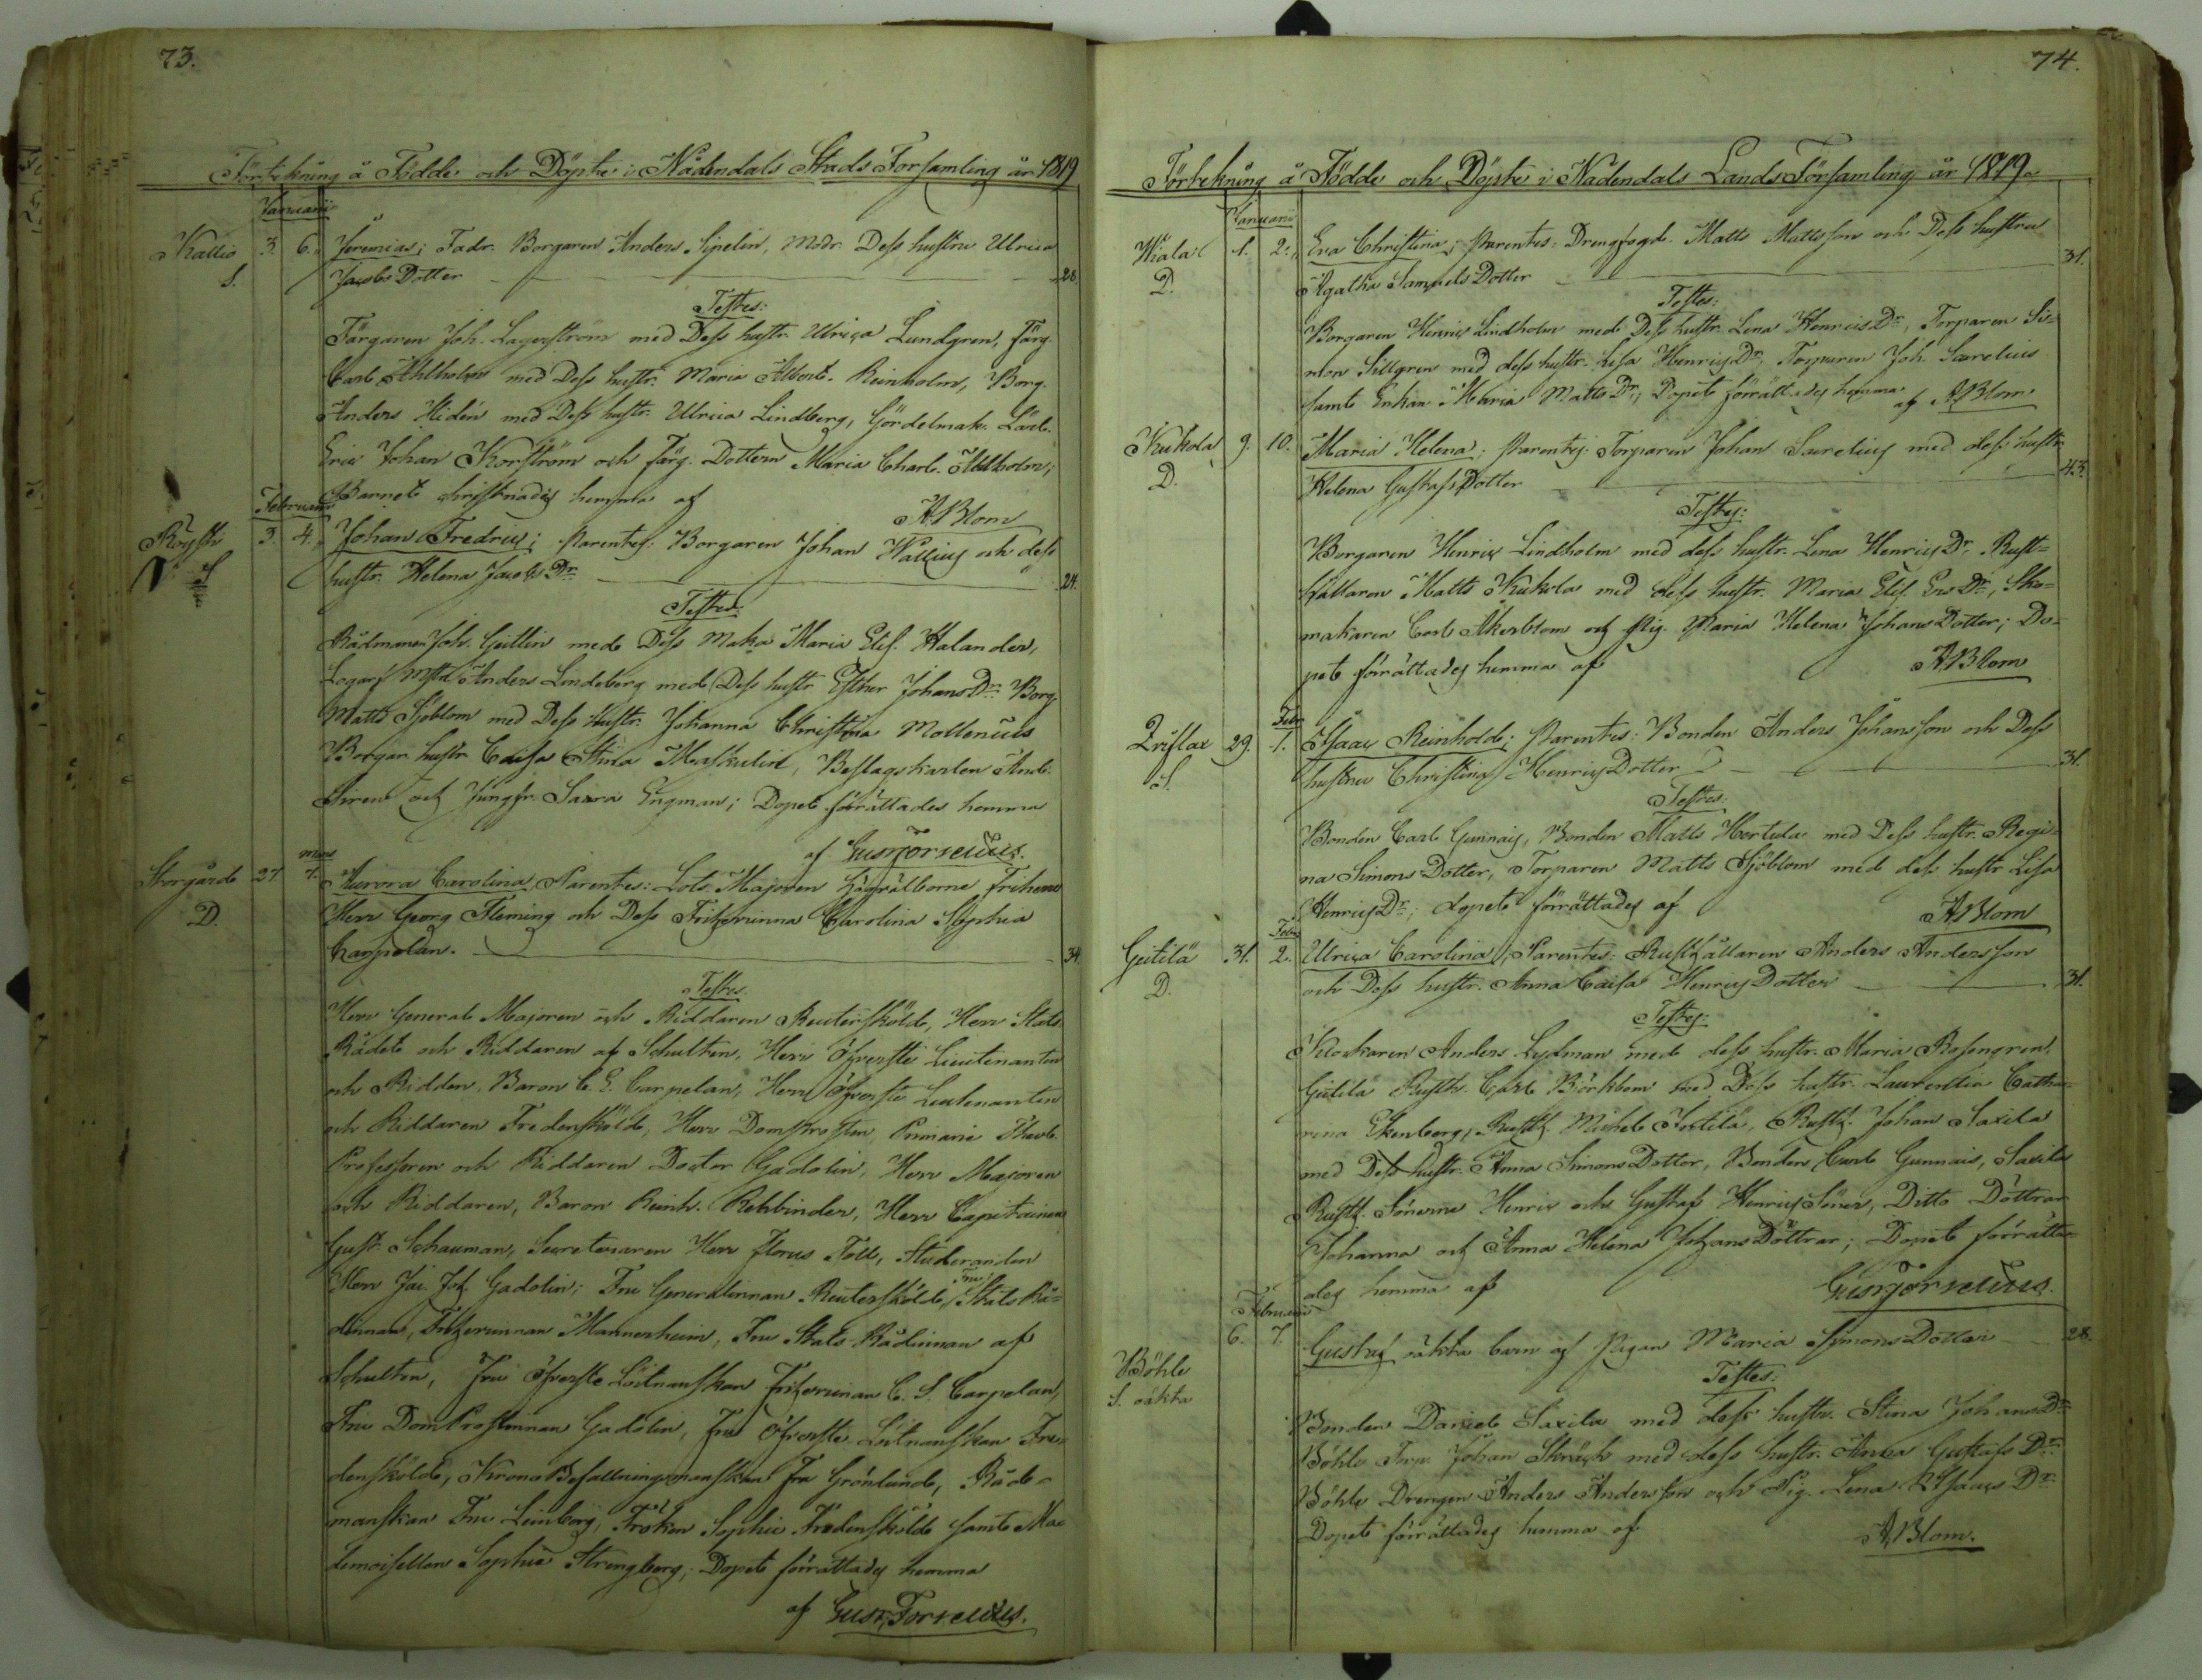 73.
Förtekning å Födde och Döpte i Nådendals Stads Forsamling år 1819
Januarii
Kallio 3. 6. Jeremias; Fadr. Borgaren Anders Sipelin, Modr. Dess hustru Ulrica
S. Jacobs Dotter 28.
Testes:
Färgaren Joh. Lagerström med Dess hustr. Ulrica Lundgren, Färg.
Carl Ahlholm med Dess hustr. Maria Albert. Reinholm, Borg.
Anders Hidén med Dess hustr. Ulrica Lindberg, Gördelmak. Lärl.
Eric Johan Korström och färg. Dottern Maria Charl. Ahlholm;
Barnet christnades hemma af
A Blom
Februarii
Röysti 3. 4. Johan Fredric; Parentes: Borgaren Johan Wallius och dess
S. hustr. Helena Jacobs Dr. 24.
Testes:
Rådman Joh. Geitlin med Dess Maka Maria Elis. Halander,
Anders Lindeberg med Dess hustr Esther Johans Dr. Borg.
Matts Sjöblom med Dess Hustr. Johanna Christina Mollenius
Borgar hustr Caisa Stina Maskulin, Beslagskarlen And.
Siren och Jungfr. Sara Engman; Dopet förrättades hemma
af Gust. Forselius.
Mars
Storgård 27. 7. Aurora Carolina, Parentes: Lots Majoren Högvälborne Friherre
D. Herr Georg Fleming och Dess Friherrinna Carolina Sophia
Carpelan. 34.
Testes.
Herr General Majoren och Riddaren Reutersköld, Herr Stats
Rådet och Riddaren af Schulten, Herr Öfverste Lieutenanten
och Ridden. Baron C. E. Carpelan, Herr Öfverste Lieutenanten
och Riddaren Fredensköld, Herr Domprosten, Primarie Theol.
Professoren och Riddaren Doctor Gadolin, Herr Majoren
och Riddaren, Baron Reinh. Rehbinder, Herr Capitainen
Gust. Schauman, Secreteraren Herr Florus Toll, Studeranden
Herr Jac. Joh. Gadolin; Fru Generalinnan Reutersköld, Fru Stats Rå-
dinnan, Friherrinnan Mannerheim, Fru Stats Rådinnan af
Schulten, Fru Öfverste Löitnanskan Friherrinnan C. S. Carpelan,
Fru DomProstinnan Gadolin, Fru Öfverste Löitnanskan Fre-
densköld, KronoBefallningsmanskan Fru Grönlund, Råd-
manskan Fru Leinberg, Fröken Sophie Fredensköld samt Ma-
demoisellen Sophia Strengberg; Dopet förrättades hemma
af Gust. Forselius.
74.
Förtekning å Födde och Döpte i Nådendals Lands Församling år 1819
Januarii
Wiala 1. 2. Eva Christina; Parentes: Drengfogd. Matts Mattsson och Dess hustru
D. Agatha Samuels Dotter 31.
Testes:
Borgaren Henric Lindholm med Dess hustr. Lena Henrics Dr., Torparen Si-
mon Sillgren med dess hustr. Lisa Henrics Dr, Torparen Joh. Sarelius
samt Enkan Maria Matts Dr; Dopet förrättades hemma af A Blom
Kukola 9. 10. Maria Helena; Parentes: Torparen Johan Sarelius med dess hustr.
D. Helena Gustafs Dotter 43.
Testes:
Borgaren Henric Lindholm med dess hustr. Lena Henrics Dr, Rust-
hållaren Matts Kukola med dess hustr. Maria Elis. Ers Dr, Sko-
makaren Carl Åkerblom och Pig. Maria Helena Johans Dotter; Do-
pet förrättades hemma af A Blom
Febr
29. 1. Isaac Reinhold; Parentes: Bonden Anders Johansson och Dess
S. hustru Christina Henrics Dotter 31.
Testes:
Bonden Carl Gunnais, Bonden Matts Hertula med Dess hustr. Regi-
na Simons Dotter, Torparen Matts Sjöblom med dess hustr Lisa
Henrics Dr.; dopet förrättades af A Blom
Febr
Geitilä 31. 2. Ulrica Carolina; Parentes: Rusthållaren Anders Andersson
D. och Dess hustr. Anna Caisa Henrics Dotter 31.
Testes:
Klockaren Anders Lydman med dess hustr. Maria Rosengren,
Geitilä Rusth. Carl Börkbom med Dess hustr. Laurentia Catha-
rina Ekenberg, Rusth. Michel Tortila, Rusth. Johan Saxila
med Dess hustr. Anna Simons Dotter, Bonden Carl Gunnais, Saxila
Rusth. Sönerne Henric och Gustaf Henrics Söner, Ditto Döttrar
Johanna och Anna Helena Johans Döttrar; Dopet förrätta-
des hemma af Gust. Forselius.
Februarii
6. 7. Gustaf oäkta barn af Pigan Maria Simons Dotter 28.
Böhle
S. oäkta
Testes:
Bonden Daniel Saxila med dess hustr. Stina Johans Dr
Böhle Torp. Johan Skräck med dess hustr. Anna Gustafs Dr.
Böhle Drengen Anders Andersson och Pig. Lena Isaacs Dr
Dopet förrättades hemma af A Blom.